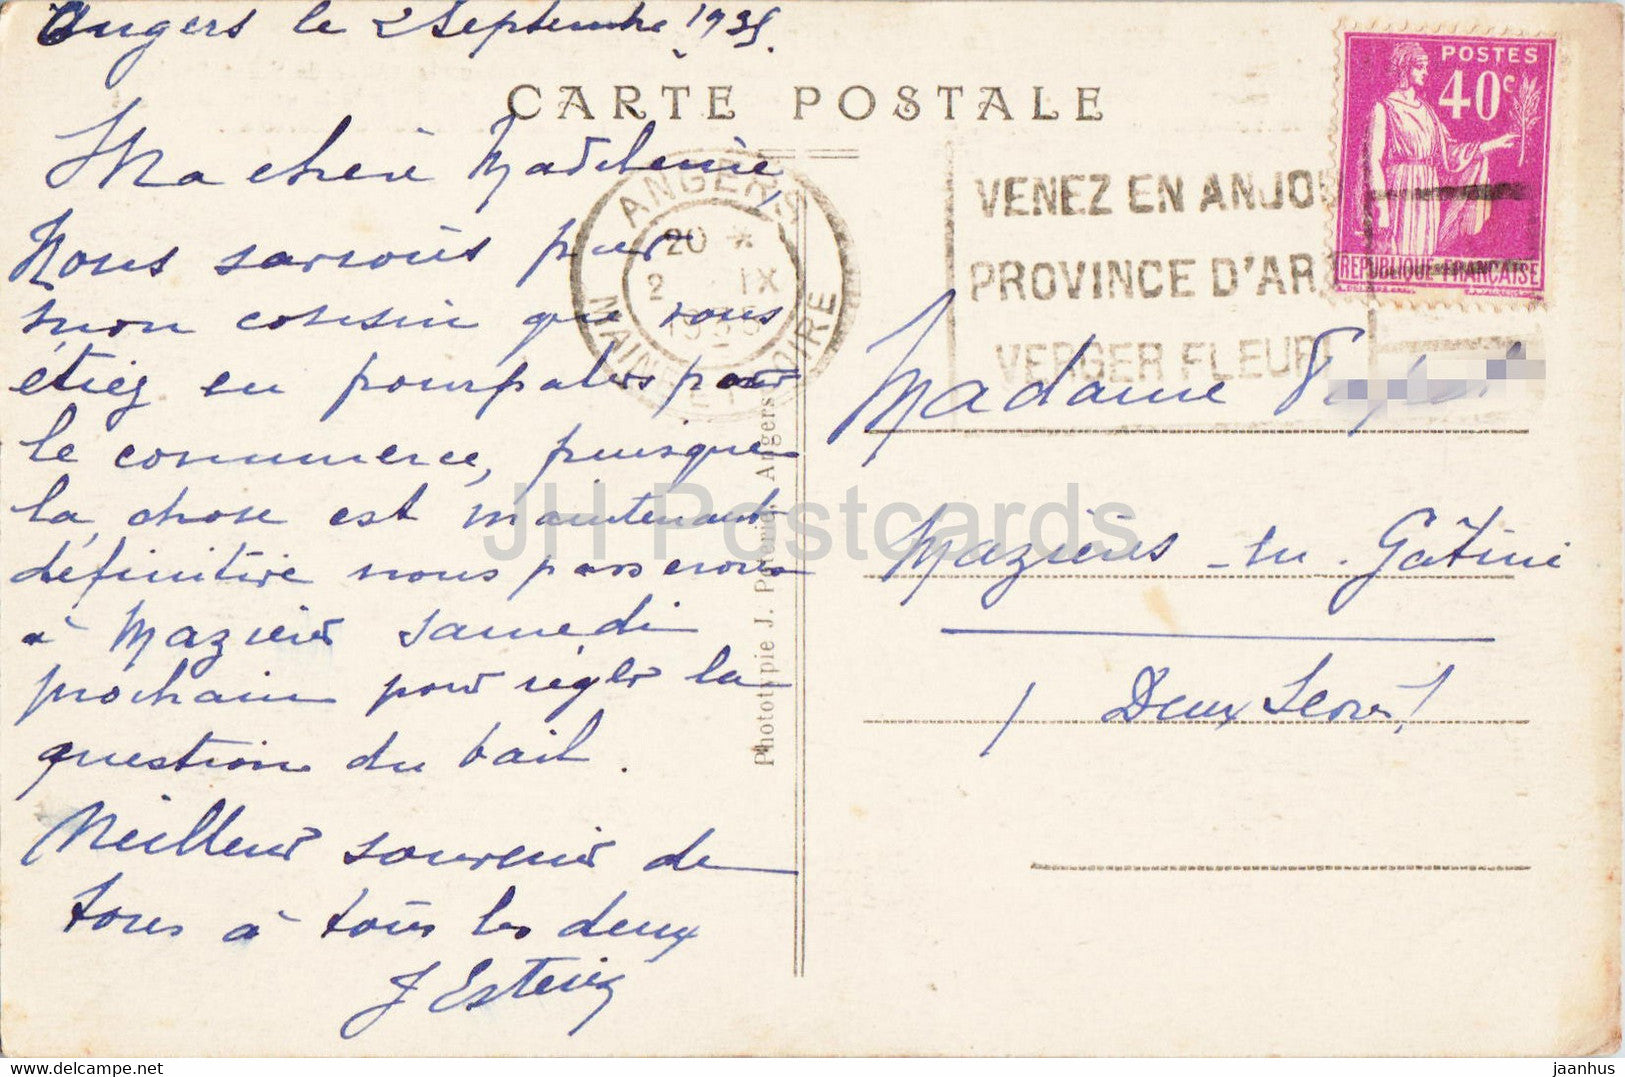 Angers le 2 Septembre 1935.
CARTE POSTALE
Ma chère Madeleine,
Nous savons par
mon cousin que vous
étiez en pourparlers pour
le commerce, puisque
la chose est maintenant
définitive nous passerons
à Mazières samedi
prochain pour régler la
question du bail.
Meilleur souvenir de
tous à tous les deux
ANGERS
20 *
2 IX
1935
MAINE ET LOIRE
VENEZ EN ANJOU
PROVINCE D'AR
VERGER FLEURI
POSTES
40c
REPUBLIQUE FRANÇAISE
Madame
Mazières-en-Gâtine
Deux Sèvres
Phototypie J. Angers
JH Postcards
hippostcard.com
jaanhus